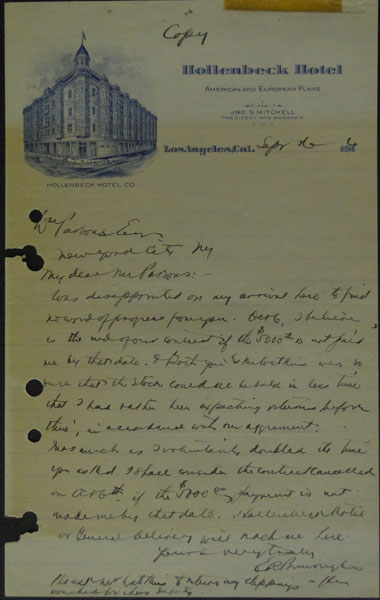 Copy
Hollenbeck Hotel
American and European Plans
JNO. S. MITCHELL
PRESIDENT AND MANAGER
Los Angeles, Cal. Sept 26 6
HOLLENBECK HOTEL CO.
Wm Parsons Esq
New York City NY
My dear Mr Parsons:-
Was disappointed on my arrival here to find
no word of progress from you. Oct 6, I believe
is the end of our contract if the $5000 is not paid
me by that date. & Both you & Mr Watkins was so
sure that the stock could all be sold in less time
that I had rather been expecting returns before
this, in accordance with our agreement.
Inasmuch as I voluntarily doubled the time
you asked I shall consider the contract cancelled
on Oct 6th if the $5000 payment is not
made me by that date. Hollenbeck Hotel
or General delivery will reach me here
Yours very truly
Burroughs
Please ask Mr Watkins to return my clippings - then